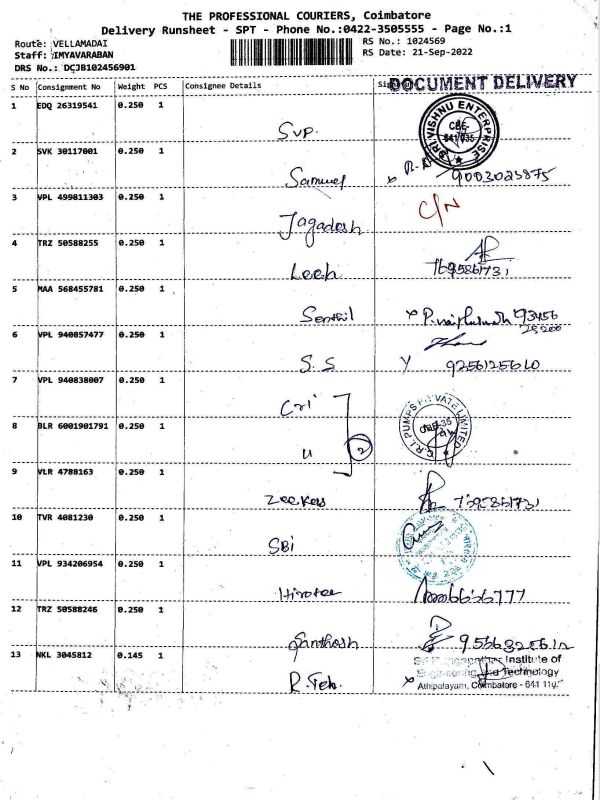 THE PROFESSIONAL COURIERS, Coimbatore
Delivery Runsheet - SPT - Phone No.:0422-3505555 - Page No.:1
Route: VELLAMADAI
RS No.: 1024569
Staff: IMYAVARABAN
RS Date: 21-Sep-2022
DRS No.: DCJB102456901
S No Consignment No Weight PCS Consignee Details
DOCUMENT DELIVERY
1 EDQ 26319541 0.250 1
SRI VISHNU ENTERPRISE
CBE
641 035
SVP.
2 SVK 30117001 0.250 1
Samuel x 9003023875
3 VPL 499811303 0.250 1
Jagadesh C/N
4 TRZ 50588255 0.250 1
Leeh
5 MAA 568455781 0.250 1
Senthil
6 VPL 940857477 0.250 1
S.S Y 9256125610
7 VPL 940838007 0.250 1
Cri
C.R.I. PUMPS PRIVATE LIMITED
8 BLR 6001901791 0.250 1
u 2
9 VLR 4788163 0.250 1
10 TVR 4081230 0.250 1
SBI
11 VPL 934206954 0.250 1
12 TRZ 50588246 0.250 1
Santhosh
13 NKL 3045812 0.145 1
Institute of
Engineering and Technology
R. Teh. x Athipalayam, Coimbatore - 641 110.